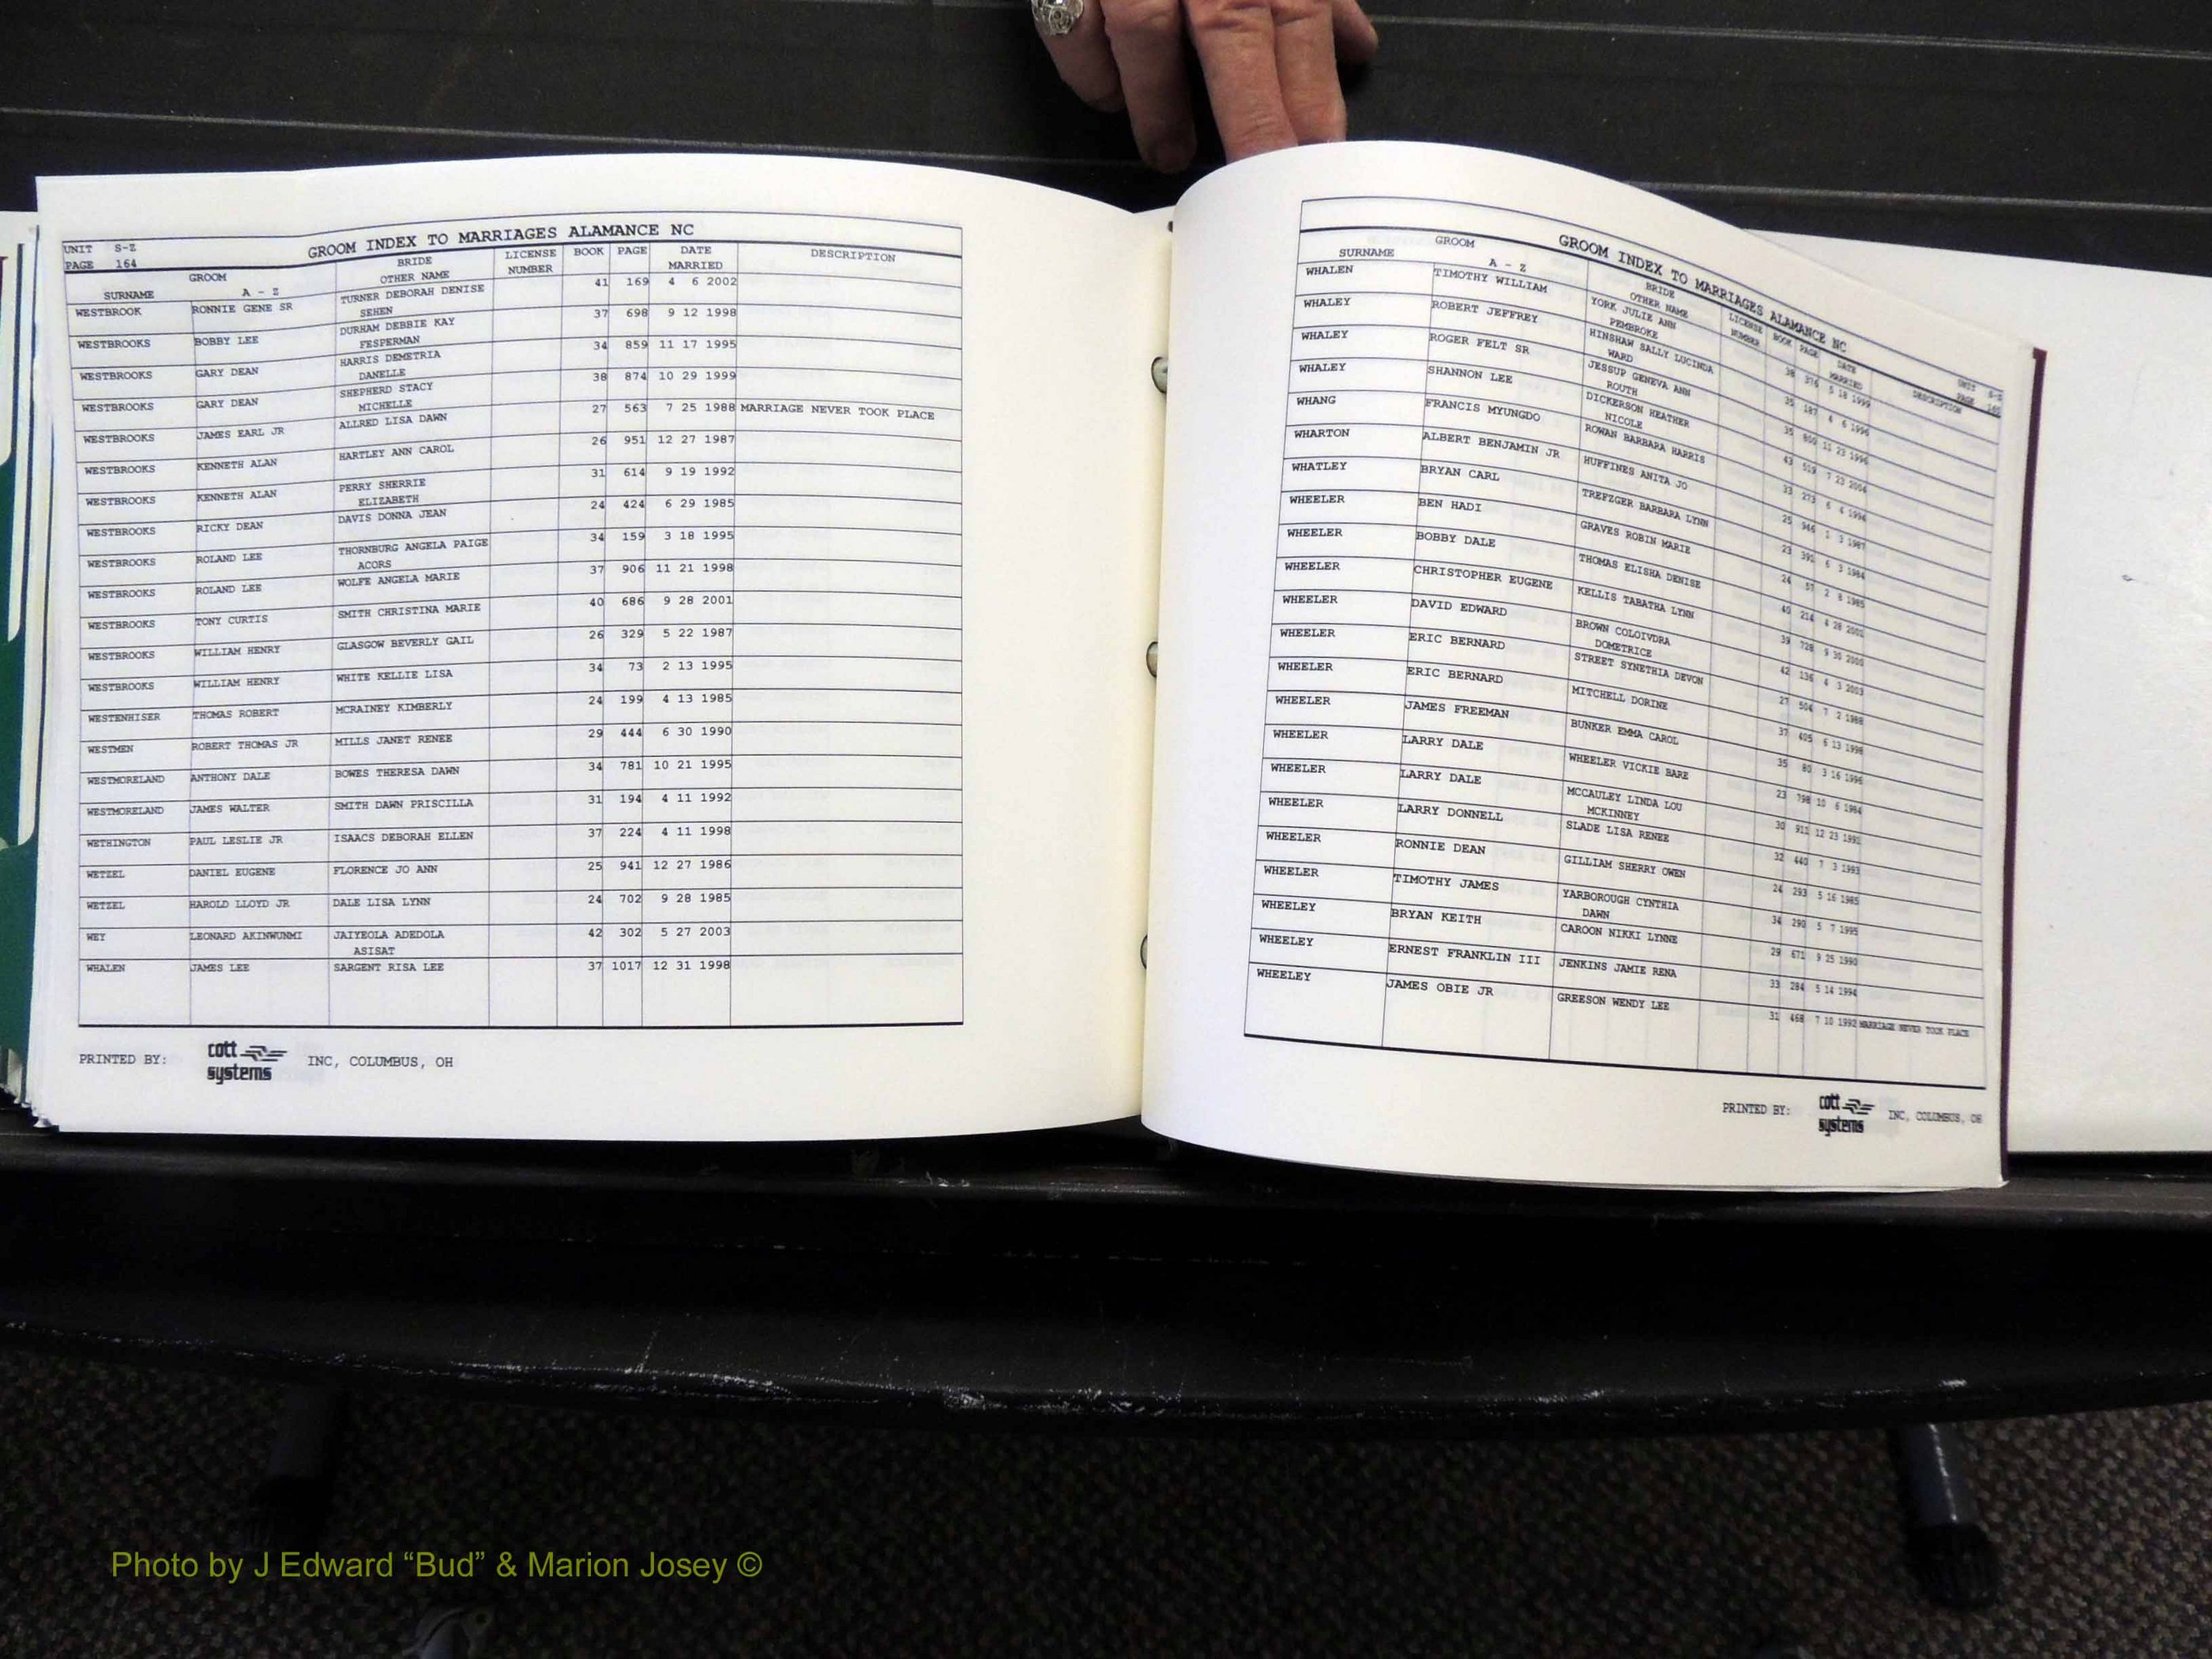 UNIT S-Z
PAGE 164
GROOM INDEX TO MARRIAGES ALAMANCE NC
GROOM BRIDE LICENSE BOOK PAGE DATE DESCRIPTION
SURNAME A - Z OTHER NAME NUMBER MARRIED
WESTBROOK RONNIE GENE SR TURNER DEBORAH DENISE 41 169 4 6 2002
SEHEN
WESTBROOKS BOBBY LEE DURHAM DEBBIE KAY 37 698 9 12 1998
FESPERMAN
WESTBROOKS GARY DEAN HARRIS DEMETRIA 34 859 11 17 1995
DANELLE
WESTBROOKS GARY DEAN SHEPHERD STACY 38 874 10 29 1999
MICHELLE
WESTBROOKS JAMES EARL JR ALLRED LISA DAWN 27 563 7 25 1988 MARRIAGE NEVER TOOK PLACE
WESTBROOKS KENNETH ALAN HARTLEY ANN CAROL 26 951 12 27 1987
WESTBROOKS KENNETH ALAN PERRY SHERRIE 31 614 9 19 1992
ELIZABETH
WESTBROOKS RICKY DEAN DAVIS DONNA JEAN 24 424 6 29 1985
WESTBROOKS ROLAND LEE THORNBURG ANGELA PAIGE 34 159 3 18 1995
ACORS
WESTBROOKS ROLAND LEE WOLFE ANGELA MARIE 37 906 11 21 1998
WESTBROOKS TONY CURTIS SMITH CHRISTINA MARIE 40 686 9 28 2001
WESTBROOKS WILLIAM HENRY GLASGOW BEVERLY GAIL 26 329 5 22 1987
WESTBROOKS WILLIAM HENRY WHITE KELLIE LISA 34 73 2 13 1995
WESTENHISER THOMAS ROBERT MCRAINEY KIMBERLY 24 199 4 13 1985
WESTMEN ROBERT THOMAS JR MILLS JANET RENEE 29 444 6 30 1990
WESTMORELAND ANTHONY DALE BOWES THERESA DAWN 34 781 10 21 1995
WESTMORELAND JAMES WALTER SMITH DAWN PRISCILLA 31 194 4 11 1992
WETHINGTON PAUL LESLIE JR ISAACS DEBORAH ELLEN 37 224 4 11 1998
WETZEL DANIEL EUGENE FLORENCE JO ANN 25 941 12 27 1986
WETZEL HAROLD LLOYD JR DALE LISA LYNN 24 702 9 28 1985
WEY LEONARD AKINWUNMI JAIYEOLA ADEDOLA 42 302 5 27 2003
ASISAT
WHALEN JAMES LEE SARGENT RISA LEE 37 1017 12 31 1998
PRINTED BY: cott systems INC, COLUMBUS, OH
GROOM INDEX TO MARRIAGES ALAMANCE NC
UNIT S-Z
PAGE 165
GROOM BRIDE LICENSE BOOK PAGE DATE DESCRIPTION
SURNAME A - Z OTHER NAME NUMBER MARRIED
WHALEN TIMOTHY WILLIAM YORK JULIE ANN 38 376 5 18 1999
PEMBROKE
WHALEY ROBERT JEFFREY HINSHAW SALLY LUCINDA 35 187 4 6 1996
WARD
WHALEY ROGER FELT SR JESSUP GENEVA ANN 35 11 23 1996
ROUTH
WHALEY SHANNON LEE DICKERSON HEATHER 43 519 7 23 2004
NICOLE
WHANG FRANCIS MYUNGDO ROWAN BARBARA HARRIS 33 273 6 4 1994
WHARTON ALBERT BENJAMIN JR HUFFINES ANITA JO 25 946 1 3 1987
WHATLEY BRYAN CARL TREFZGER BARBARA LYNN 23 391 6 3 1984
WHEELER BEN HADI GRAVES ROBIN MARIE 24 57 2 8 1985
WHEELER BOBBY DALE THOMAS ELISHA DENISE 40 214 4 28 2001
WHEELER CHRISTOPHER EUGENE KELLIS TABATHA LYNN 39 728 9 30 2000
WHEELER DAVID EDWARD BROWN COLOIVDRA 42 136 4 3 2003
DOMETRICE
WHEELER ERIC BERNARD STREET SYNETHIA DEVON 27 504 7 2 1988
WHEELER ERIC BERNARD MITCHELL DORINE 37 405 6 13 1998
WHEELER JAMES FREEMAN BUNKER EMMA CAROL 35 80 3 16 1996
WHEELER LARRY DALE WHEELER VICKIE BARE 23 798 10 6 1984
WHEELER LARRY DALE MCCAULEY LINDA LOU 30 911 12 23 1991
MCKINNEY
WHEELER LARRY DONNELL SLADE LISA RENEE 32 440 7 3 1993
WHEELER RONNIE DEAN GILLIAM SHERRY OWEN 24 293 5 16 1985
WHEELER TIMOTHY JAMES YARBOROUGH CYNTHIA 34 290 5 7 1995
DAWN
WHEELEY BRYAN KEITH CAROON NIKKI LYNNE 29 671 9 25 1990
WHEELEY ERNEST FRANKLIN III JENKINS JAMIE RENA 33 284 5 14 1994
WHEELEY JAMES OBIE JR GREESON WENDY LEE 31 468 7 10 1992 MARRIAGE NEVER TOOK PLACE
PRINTED BY: cott systems INC, COLUMBUS, OH
Photo by J Edward “Bud” & Marion Josey ©